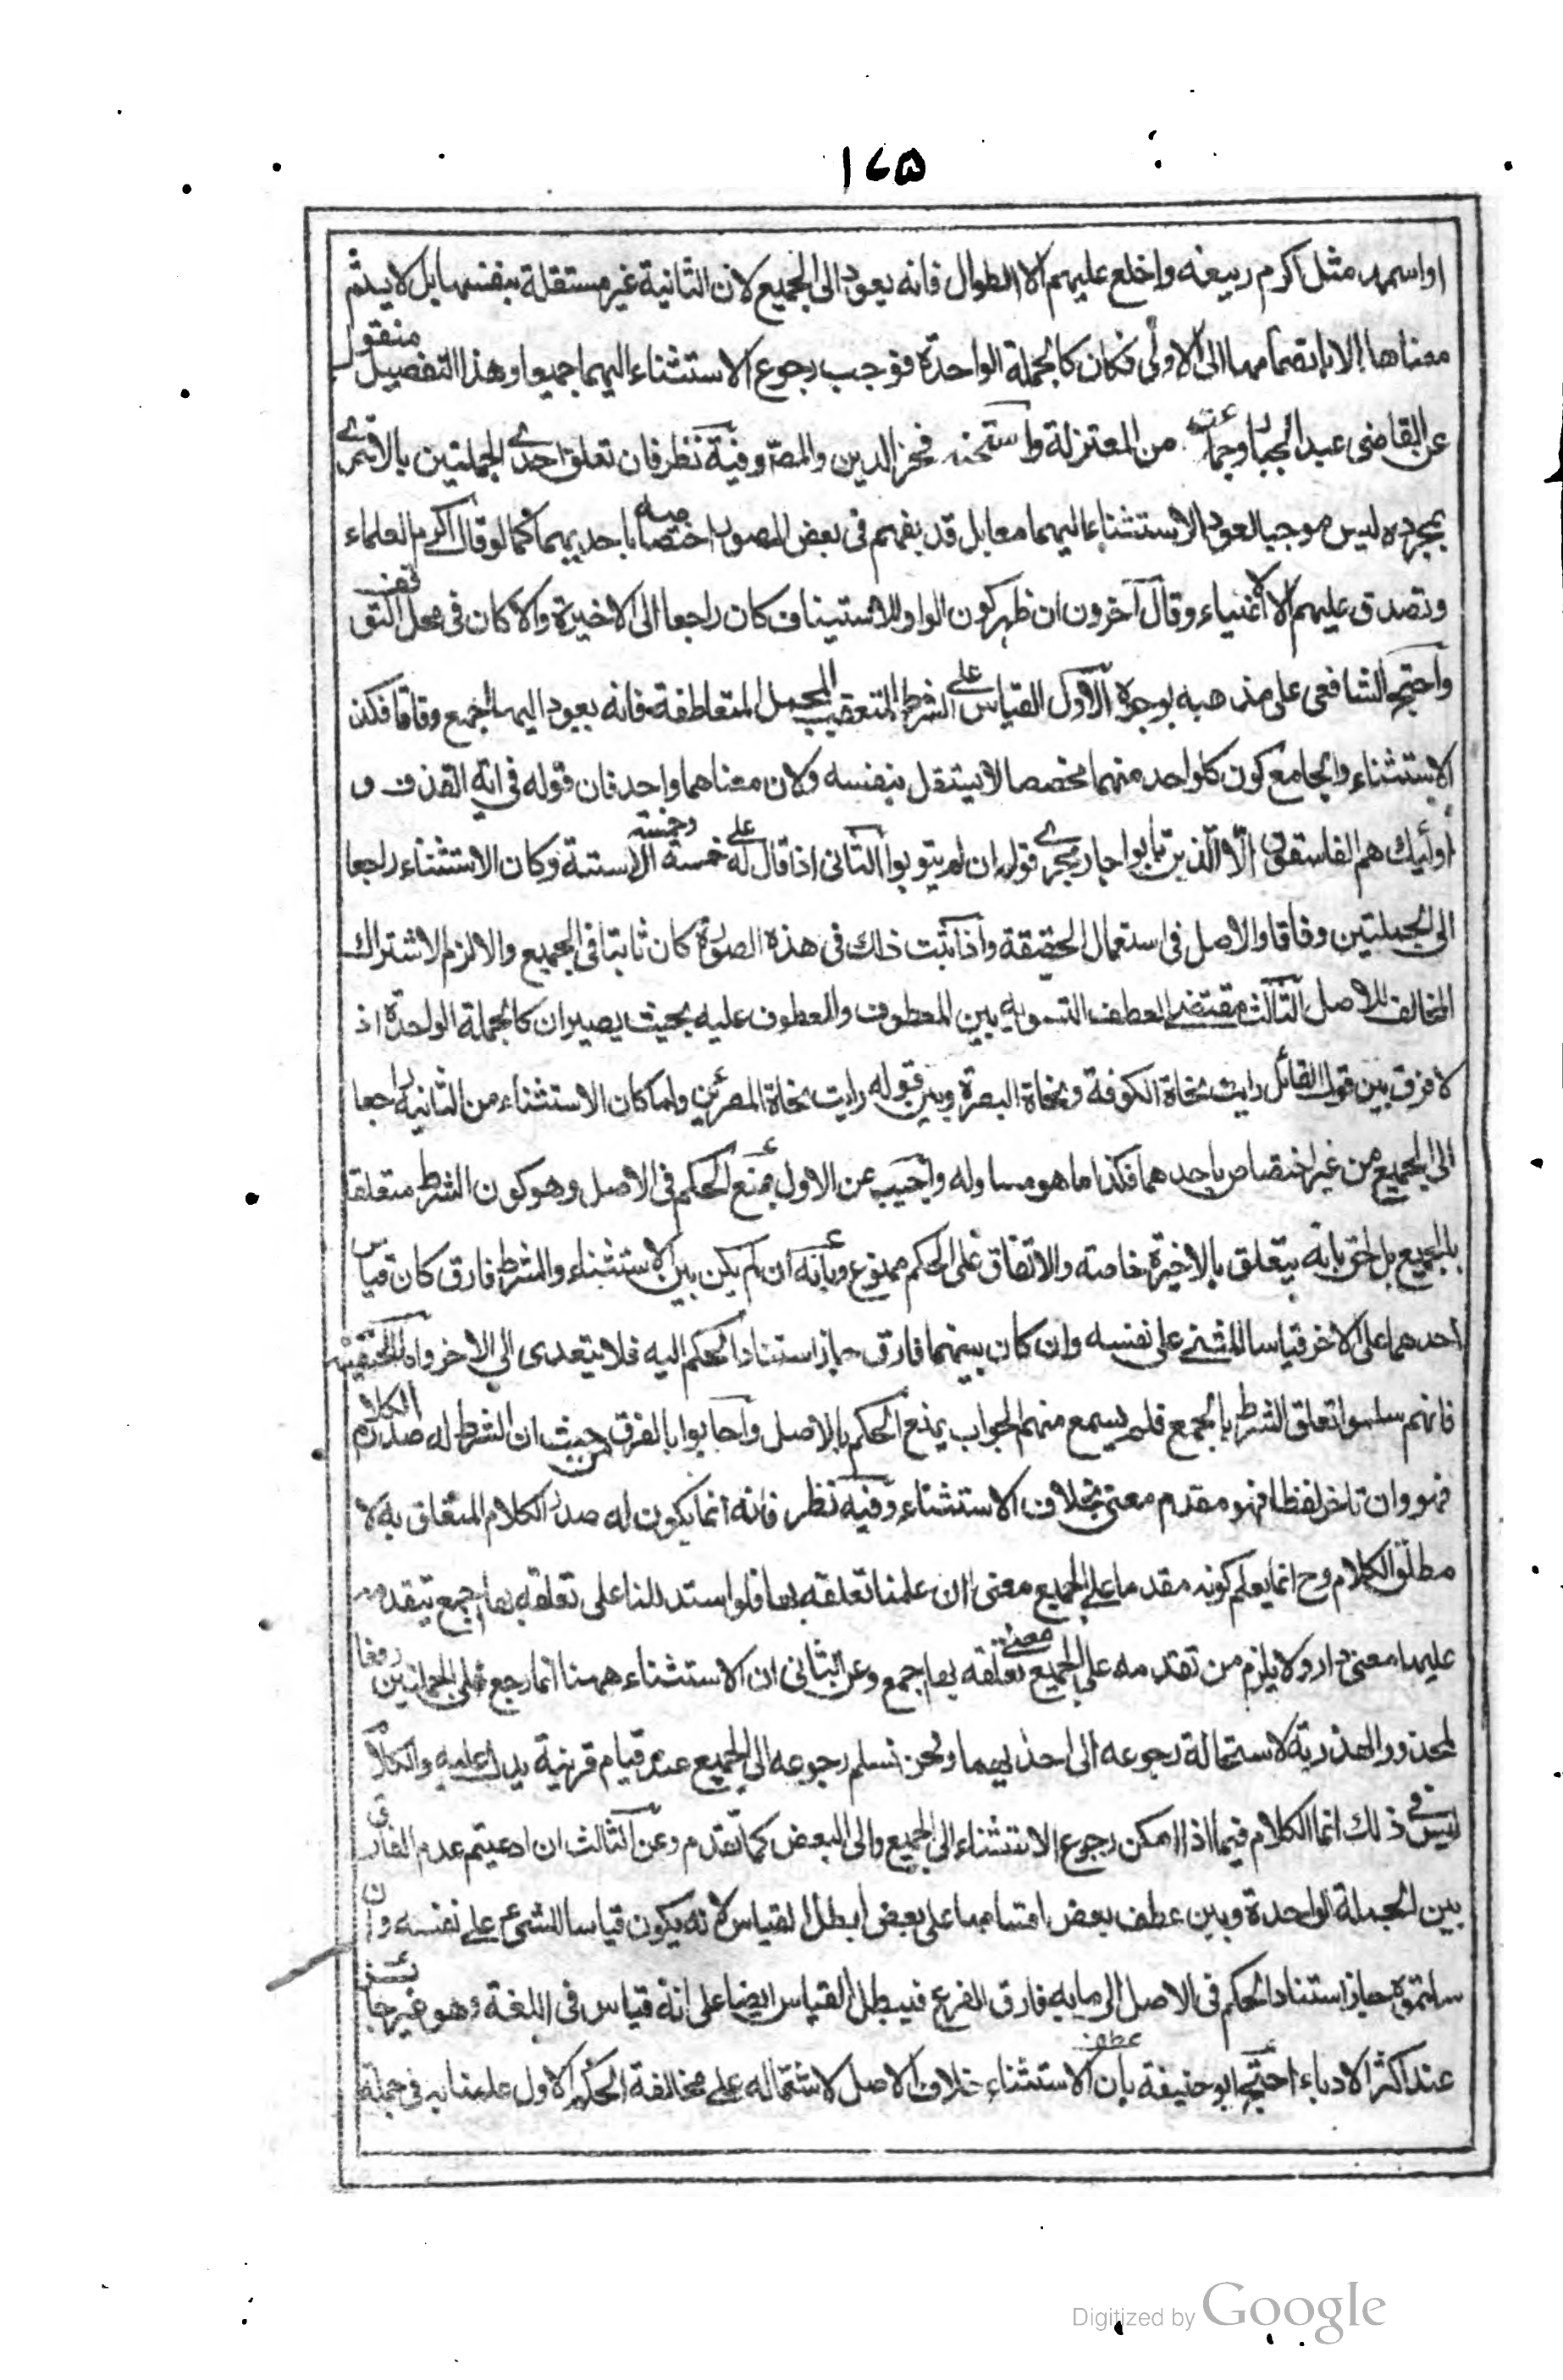 ١٢۵
او اسمه مثل اكرم ربيعة واخلع عليهم الا الطوال فانه يعود الى الجميع لان الثانية غير مستقلة بنفسها بل لا يتم
معناها الا بانضمامها الى الاولى فكان كالجملة الواحدة فوجب رجوع الاستثناء اليهما جميعا وهذا التفصيل منقول
عن القاضى عبد الجبار وجماعة من المعتزلة واستحسنه فخر الدين والمصّ وفيه نظر فان تعلق احدى الجملتين بالاخرى
بمجرده ليس موجبا لعود الاستثناء اليهما معا بل قد يفهم فى بعض الصور اختصاصه باحديهما كما لو قال اكرم العلماء
وتصدق عليهم الا الأغنياء وقال آخرون ان ظهر كون الواو للاستيناف كان راجعا الى الاخيرة والا كان فى محل التوقف
واحتج الشافعى على مذهبه بوجوه الاول القياس على الشرط المتعقب للجمل المتعاطفة فانه يعود اليها جميع وفاقا فكذا
الاستثناء والجامع كون كل واحد منهما مخصصا لا يستقل بنفسه ولان معناهما واحد فان قوله فى اية القذف و
أولئك هم الفاسقون الّا الّذين تابوا جار مجرى قوله ان لم يتوبوا الثانى اذا قال له على خمسة وخمسة الا ستة وكان الاستثناء راجعا
الى الجملتين وفاقا والاصل فى استعمال الحقيقة واذا ثبت ذلك فى هذه الصورة كان ثابتا فى الجميع والا لزم الاشتراك
المخالف للاصل الثالث مقتضى العطف التسوية بين المعطوف والمعطوف عليه بحيث يصيران كالجملة الواحدة اذ
لا فرق بين قول القائل رايت نحاة الكوفة ونحاة البصرة وبين قوله رايت نحاة المصرين ولما كان الاستثناء من الثانية راجعا
الى الجميع من غير اختصاص باحدهما فكذا ما هو مساو له واجيب عن الاول بمنع الحكم فى الاصل وهو كون الشرط متعلقا
بالجميع بل الحق بانه يتعلق بالاخيرة خاصة والاتفاق على الحكم ممنوع وبانه ان لم يكن بين الاستثناء والشرط فارق كان قياس
احدهما على الاخر قياسا للشئ على نفسه وان كان بينهما فارق جاز استناد الحكم اليه فلا يتعدى الى الاخر واما الحنفية
فانهم سلموا تعلق الشرط بالجميع فلم يسمع منهم الجواب بمنع الحكم بالاصل واجابوا بالفرق من حيث ان الشرط له صدارة الكلام
فهو وان تاخر لفظا فهو مقدم معنى بخلاف الاستثناء وفيه نظر فانه انما يكون له صدر الكلام المتعلق به لا
مطلق الكلام وح انما يعلم كونه مقدما على الجميع معنى ان علمنا تعلقه بها فلو استدللنا على تعلقه بها اجمع بتقدمه
عليها معنى دار ولا يلزم من تقدمه على الجميع معنى تعلقه بها اجمع وعن الثانى ان الاستثناء ههنا انما رجع الى الجملتين رفعا
لمحذور الهذرية لاستحالة رجوعه الى احديهما ونحن نسلم رجوعه الى الجميع عند قيام قرينة يدل عليه والكلام
ليس فى ذلك انما الكلام فيما اذا امكن رجوع الاستثناء الى الجميع والى البعض كما تقدم وعن الثالث ان ادعيتم عدم الفارق
بين الجملة الواحدة وبين عطف بعض اقسامها على بعض ابطل القياس لانه يكون قياسا للشئ على نفسه وان
سلمتموه جاز استناد الحكم فى الاصل الى ما به فارق الفرع فيبطل القياس ايضا على انه قياس فى اللغة وهو غير جائز
عند اكثر الادباء احتج ابو حنيفة بان الاستثناء خلاف الاصل لاشتماله على مخالفة الحكم الاول علمنا به فى جملة
Digitized by Google